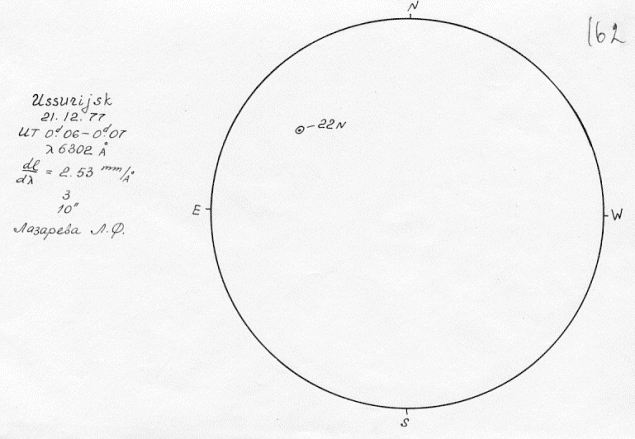 N
162
Ussurijsk
21.12.77
UT 0ᵈ.06-0ᵈ.07
λ 6302 Å
dl/dλ = 2.53 mm/Å
3
10"
Лазарева Л.Ф.
22N
E
W
S